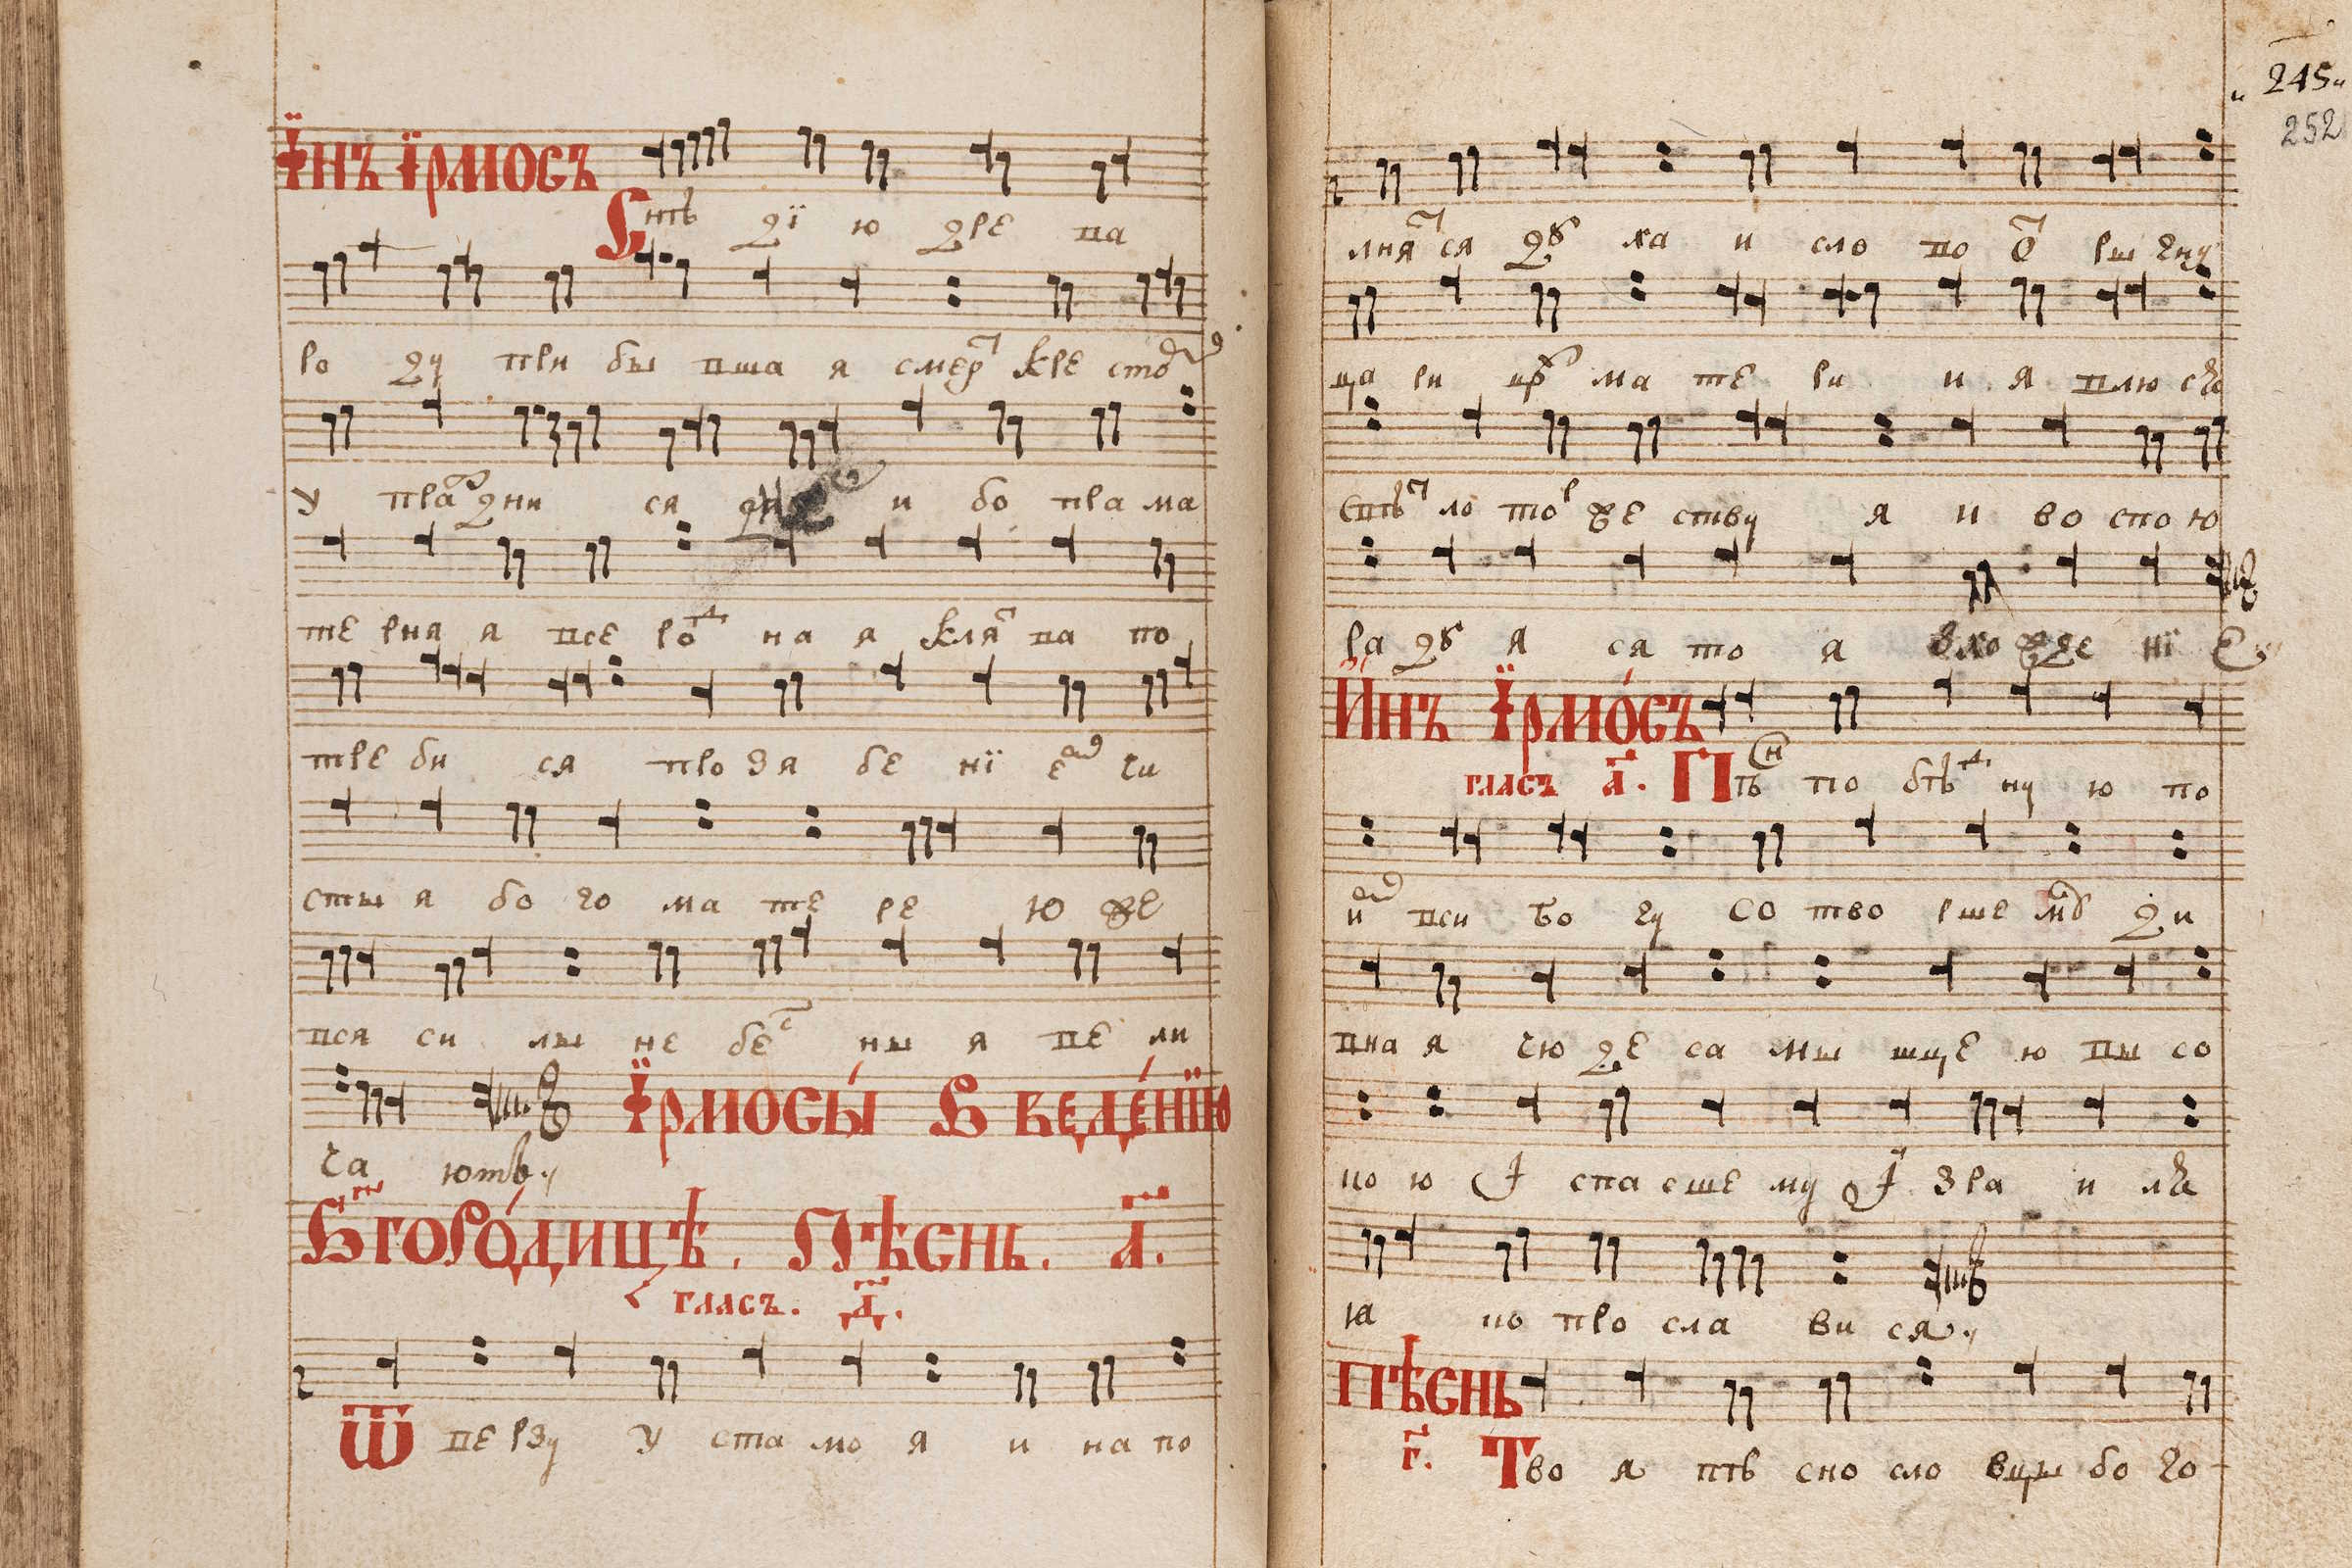 Їнъ їрмосъ
Снѣ дїю дре ва
ро ду при бы вша я смерт кре стод
у пра дни ся и бо пра ма
те рня я все род на я клят ва по
тре би ся про зя бе нї е чи
сты я бо го ма те ре ю же
вся си лы не бес ны я ве ли
ча ютъ
Їрмосы́ В веде́нїю
Бг҃оро́дицѣ. Пѣснь. а҃.
гласъ. д҃.
Ѿ ве рзу у ста мо я и на по
„245„
252
лнят ся ду ха и сло во от ры гну
ца ри цр ма те ри и я влю ся
свѣт ло тор же ству я и во спо ю
ра ду я ся то я вхо жде нї е
И́нъ Їрмо́съ
гласъ а҃. Пѣ по бѣд ну ю по
и вси бо гу со тво рше м ди
вна я чю де са мы шце ю вы со
ко ю І спа сше му І зра и ля
ꙗ ко про сла ви ся
Пѣснь
г҃. Тво я пѣ сно сло вцы бо го